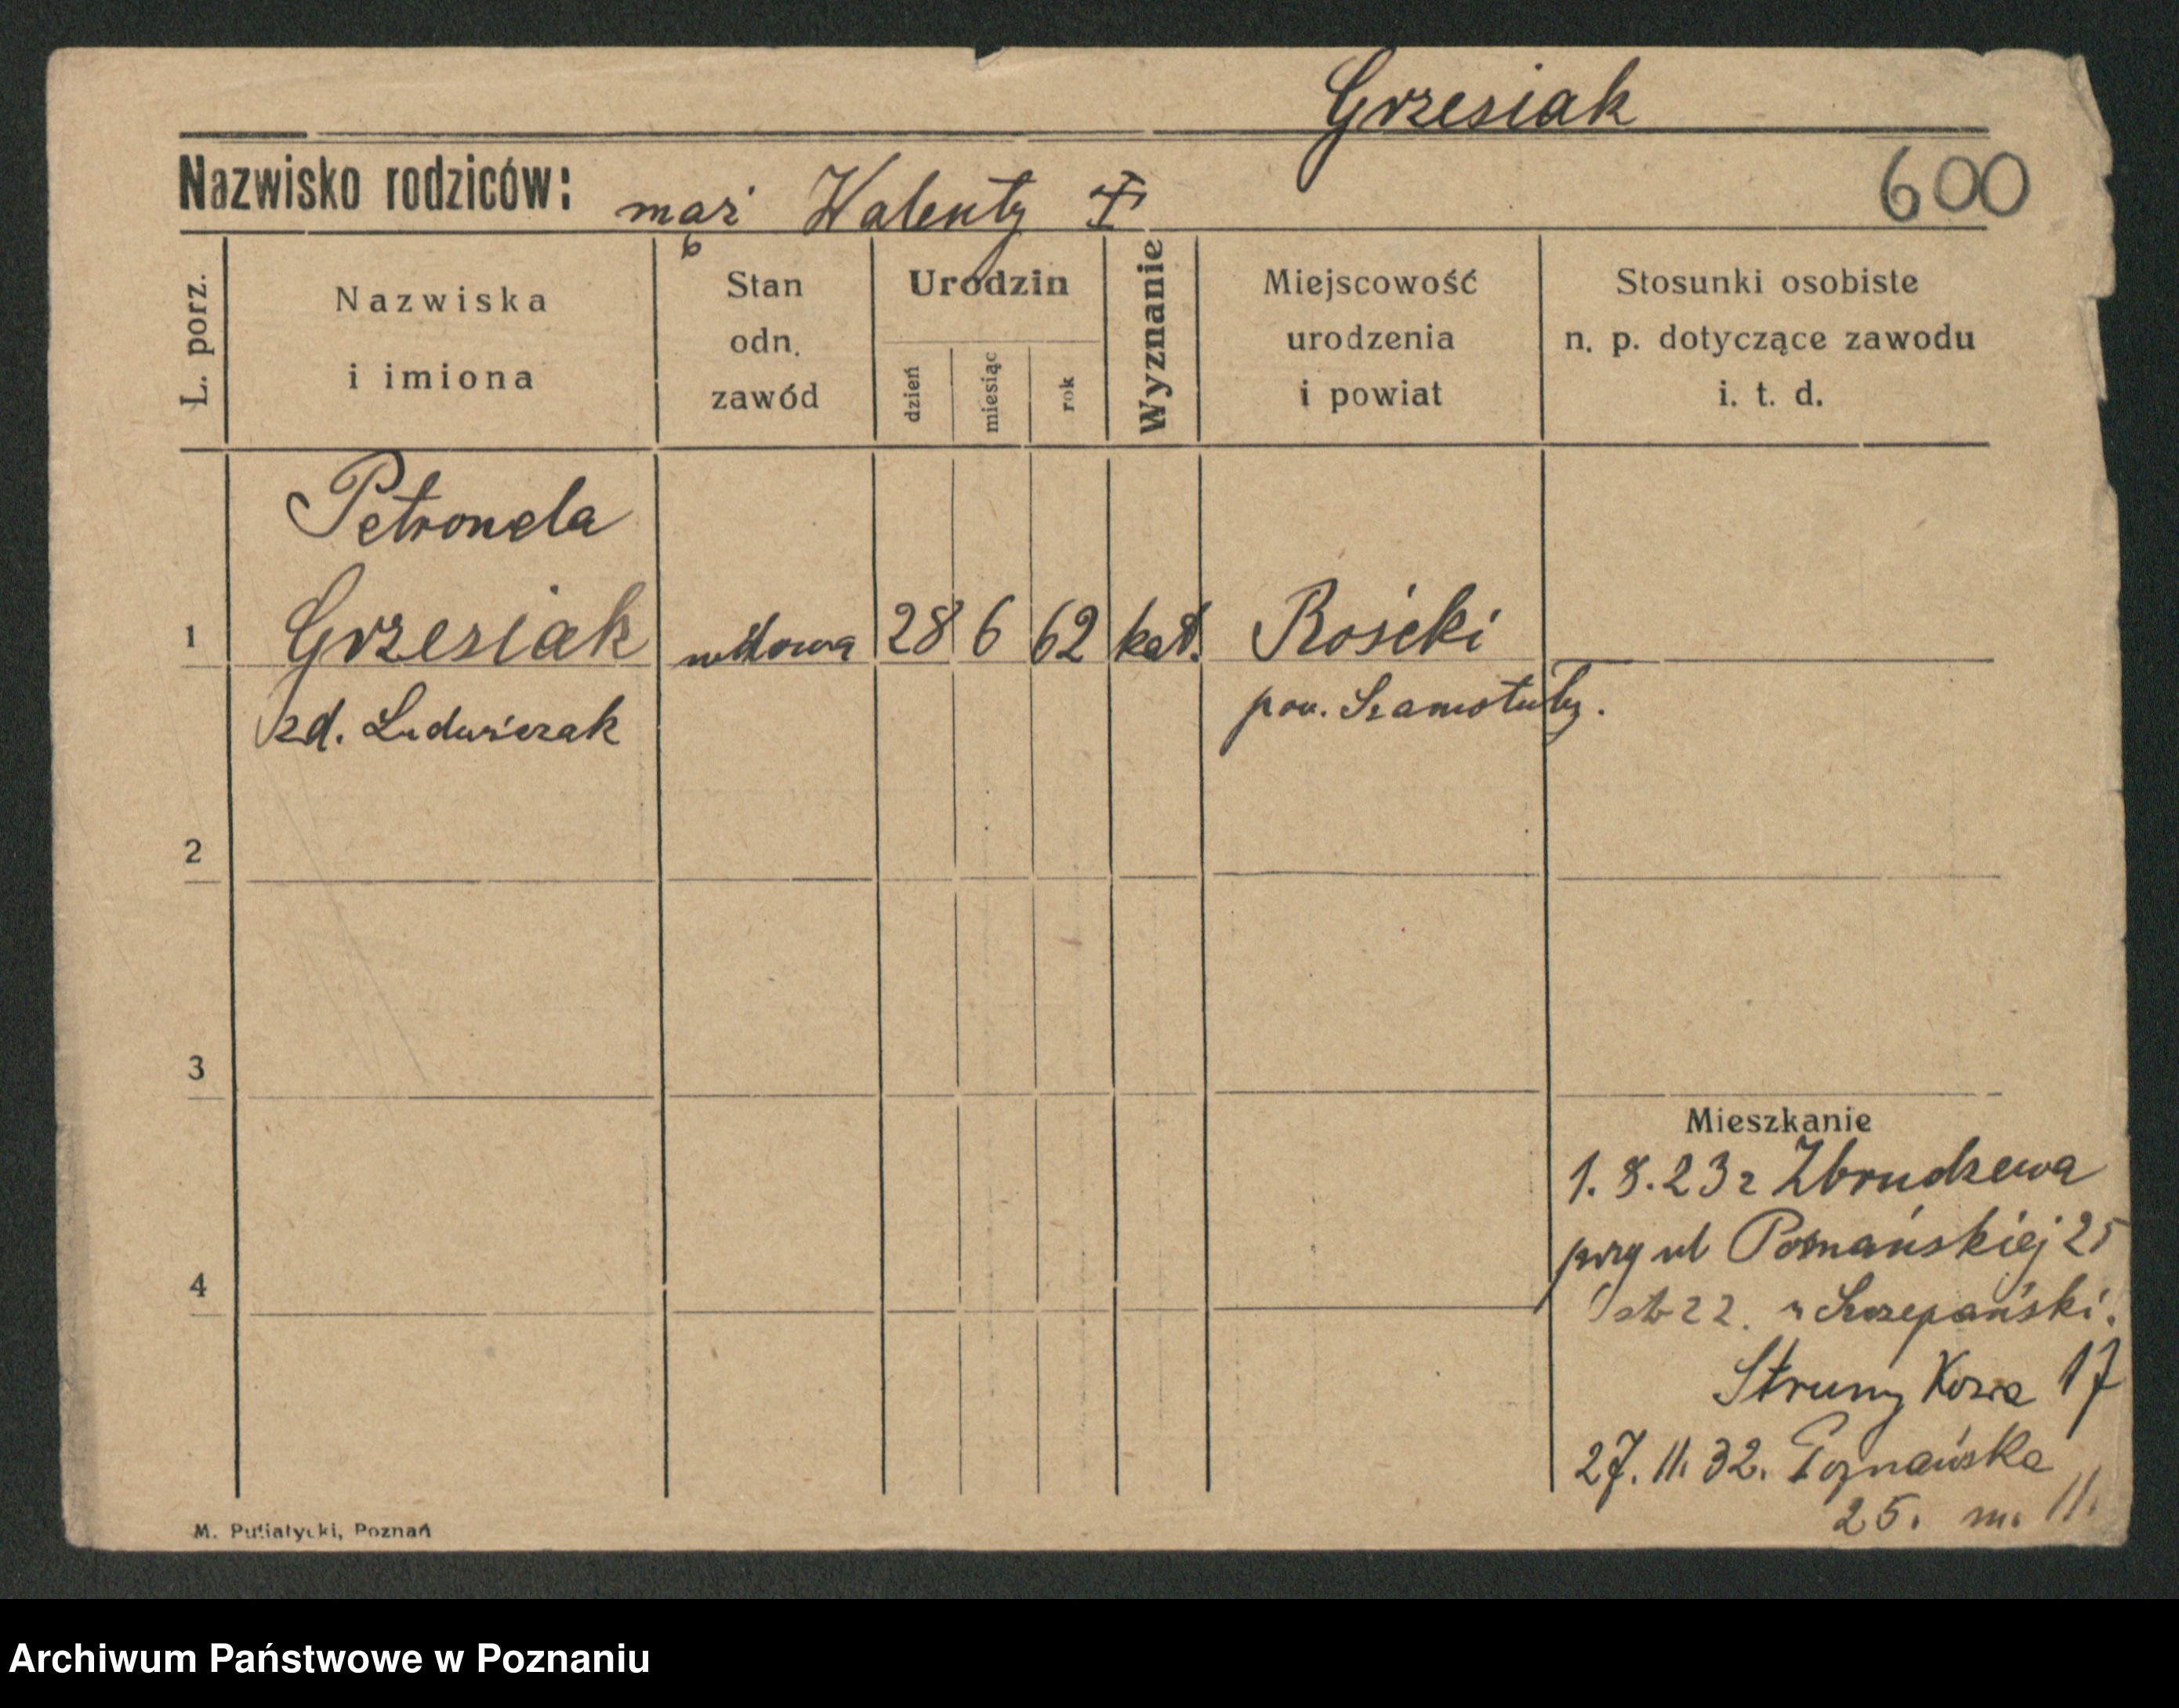 Grzesiak
600
Nazwisko rodziców: mąż Walenty
L. porz.
Nazwiska i imiona
Stan odn. zawód
Urodzin
dzień
miesiąc
rok
Wyznanie
Miejscowość urodzenia i powiat
Stosunki osobiste n. p. dotyczące zawodu i. t. d.
Petronela
1 Grzesiak wdowa 28 6 62 kat. Rościki
zd. Ludwiczak pow. Szamotuły.
2
3
4
Mieszkanie
1. 8. 23 z Zbrudzewa
przy ul Poznańskiej 25
22. u Szczepański.
Strumy Kowa 17
27. 11. 32. Poznańska
25. m. 11.
M. Putiatycki, Poznań
Archiwum Państwowe w Poznaniu